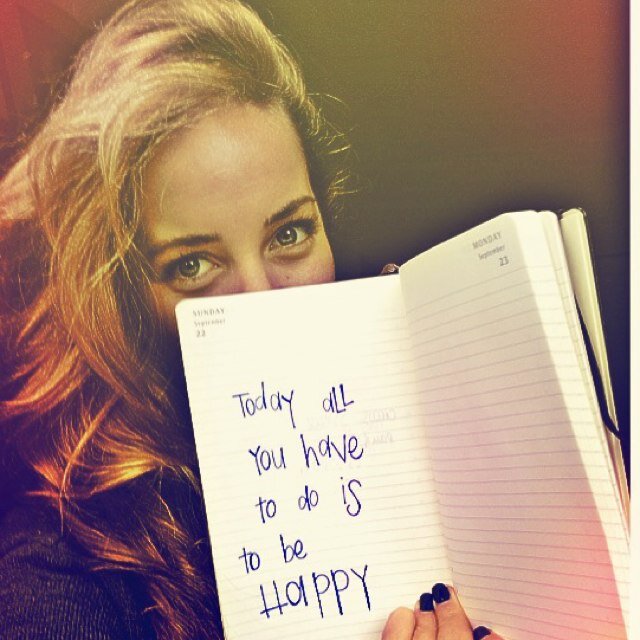 SUNDAY
September
22
MONDAY
September
23
Today aLL
You have
to do iS
to be
HaPPY